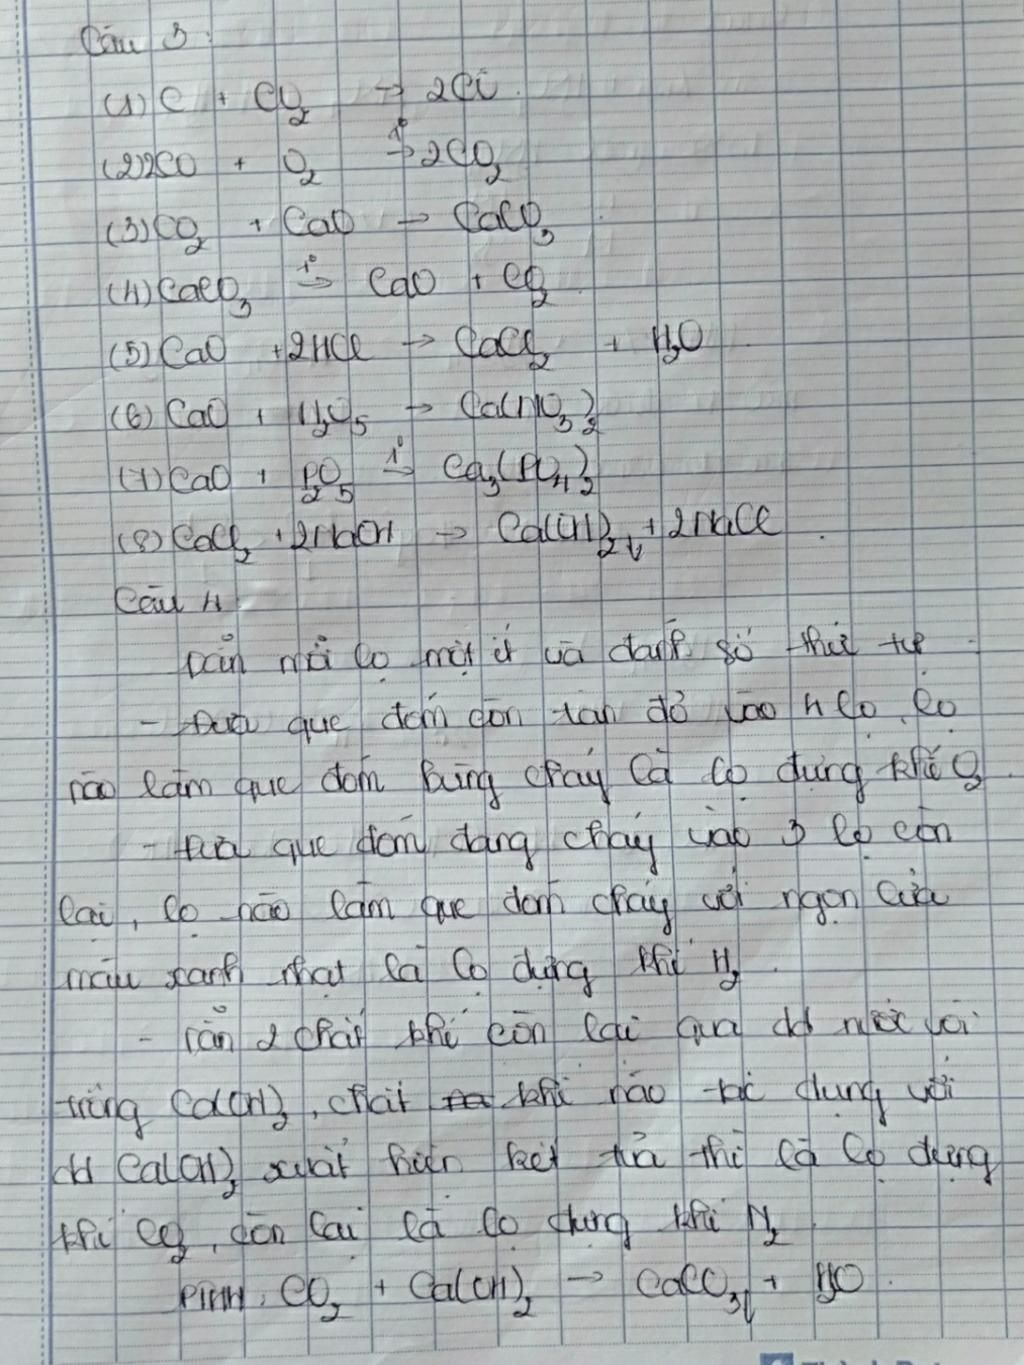 Câu 3:
(1) C + CO2 → 2CO
(2) 2CO + O2 t°→ 2CO2
(3) CO2 + CaO → CaCO3
(4) CaCO3 t°→ CaO + CO2
(5) CaO + 2HCl → CaCl2 + H2O
(6) CaO + N2O5 → Ca(NO3)2
(7) CaO + P2O5 t°→ Ca3(PO4)2
(8) CaCl2 + 2NaOH → Ca(OH)2↓ + 2NaCl
Câu 4:
Dẫn mỗi lọ một ít và đánh số thứ tự
- Đưa que đóm còn tàn đỏ vào 4 lọ, lọ
nào làm que đóm bùng cháy là lọ đựng khí O2
- Đưa que đóm đang cháy vào 3 lọ còn
lại, lọ nào làm que đóm cháy với ngọn lửa
màu xanh nhạt là lọ đựng khí H2.
- Dẫn 2 chất khí còn lại qua dd nước vôi
trong Ca(OH)2, chất khí nào tác dụng với
dd Ca(OH)2 xuất hiện kết tủa thì là lọ đựng
khí CO2, còn lại là lọ đựng khí N2
PTHH: CO2 + Ca(OH)2 → CaCO3↓ + H2O.